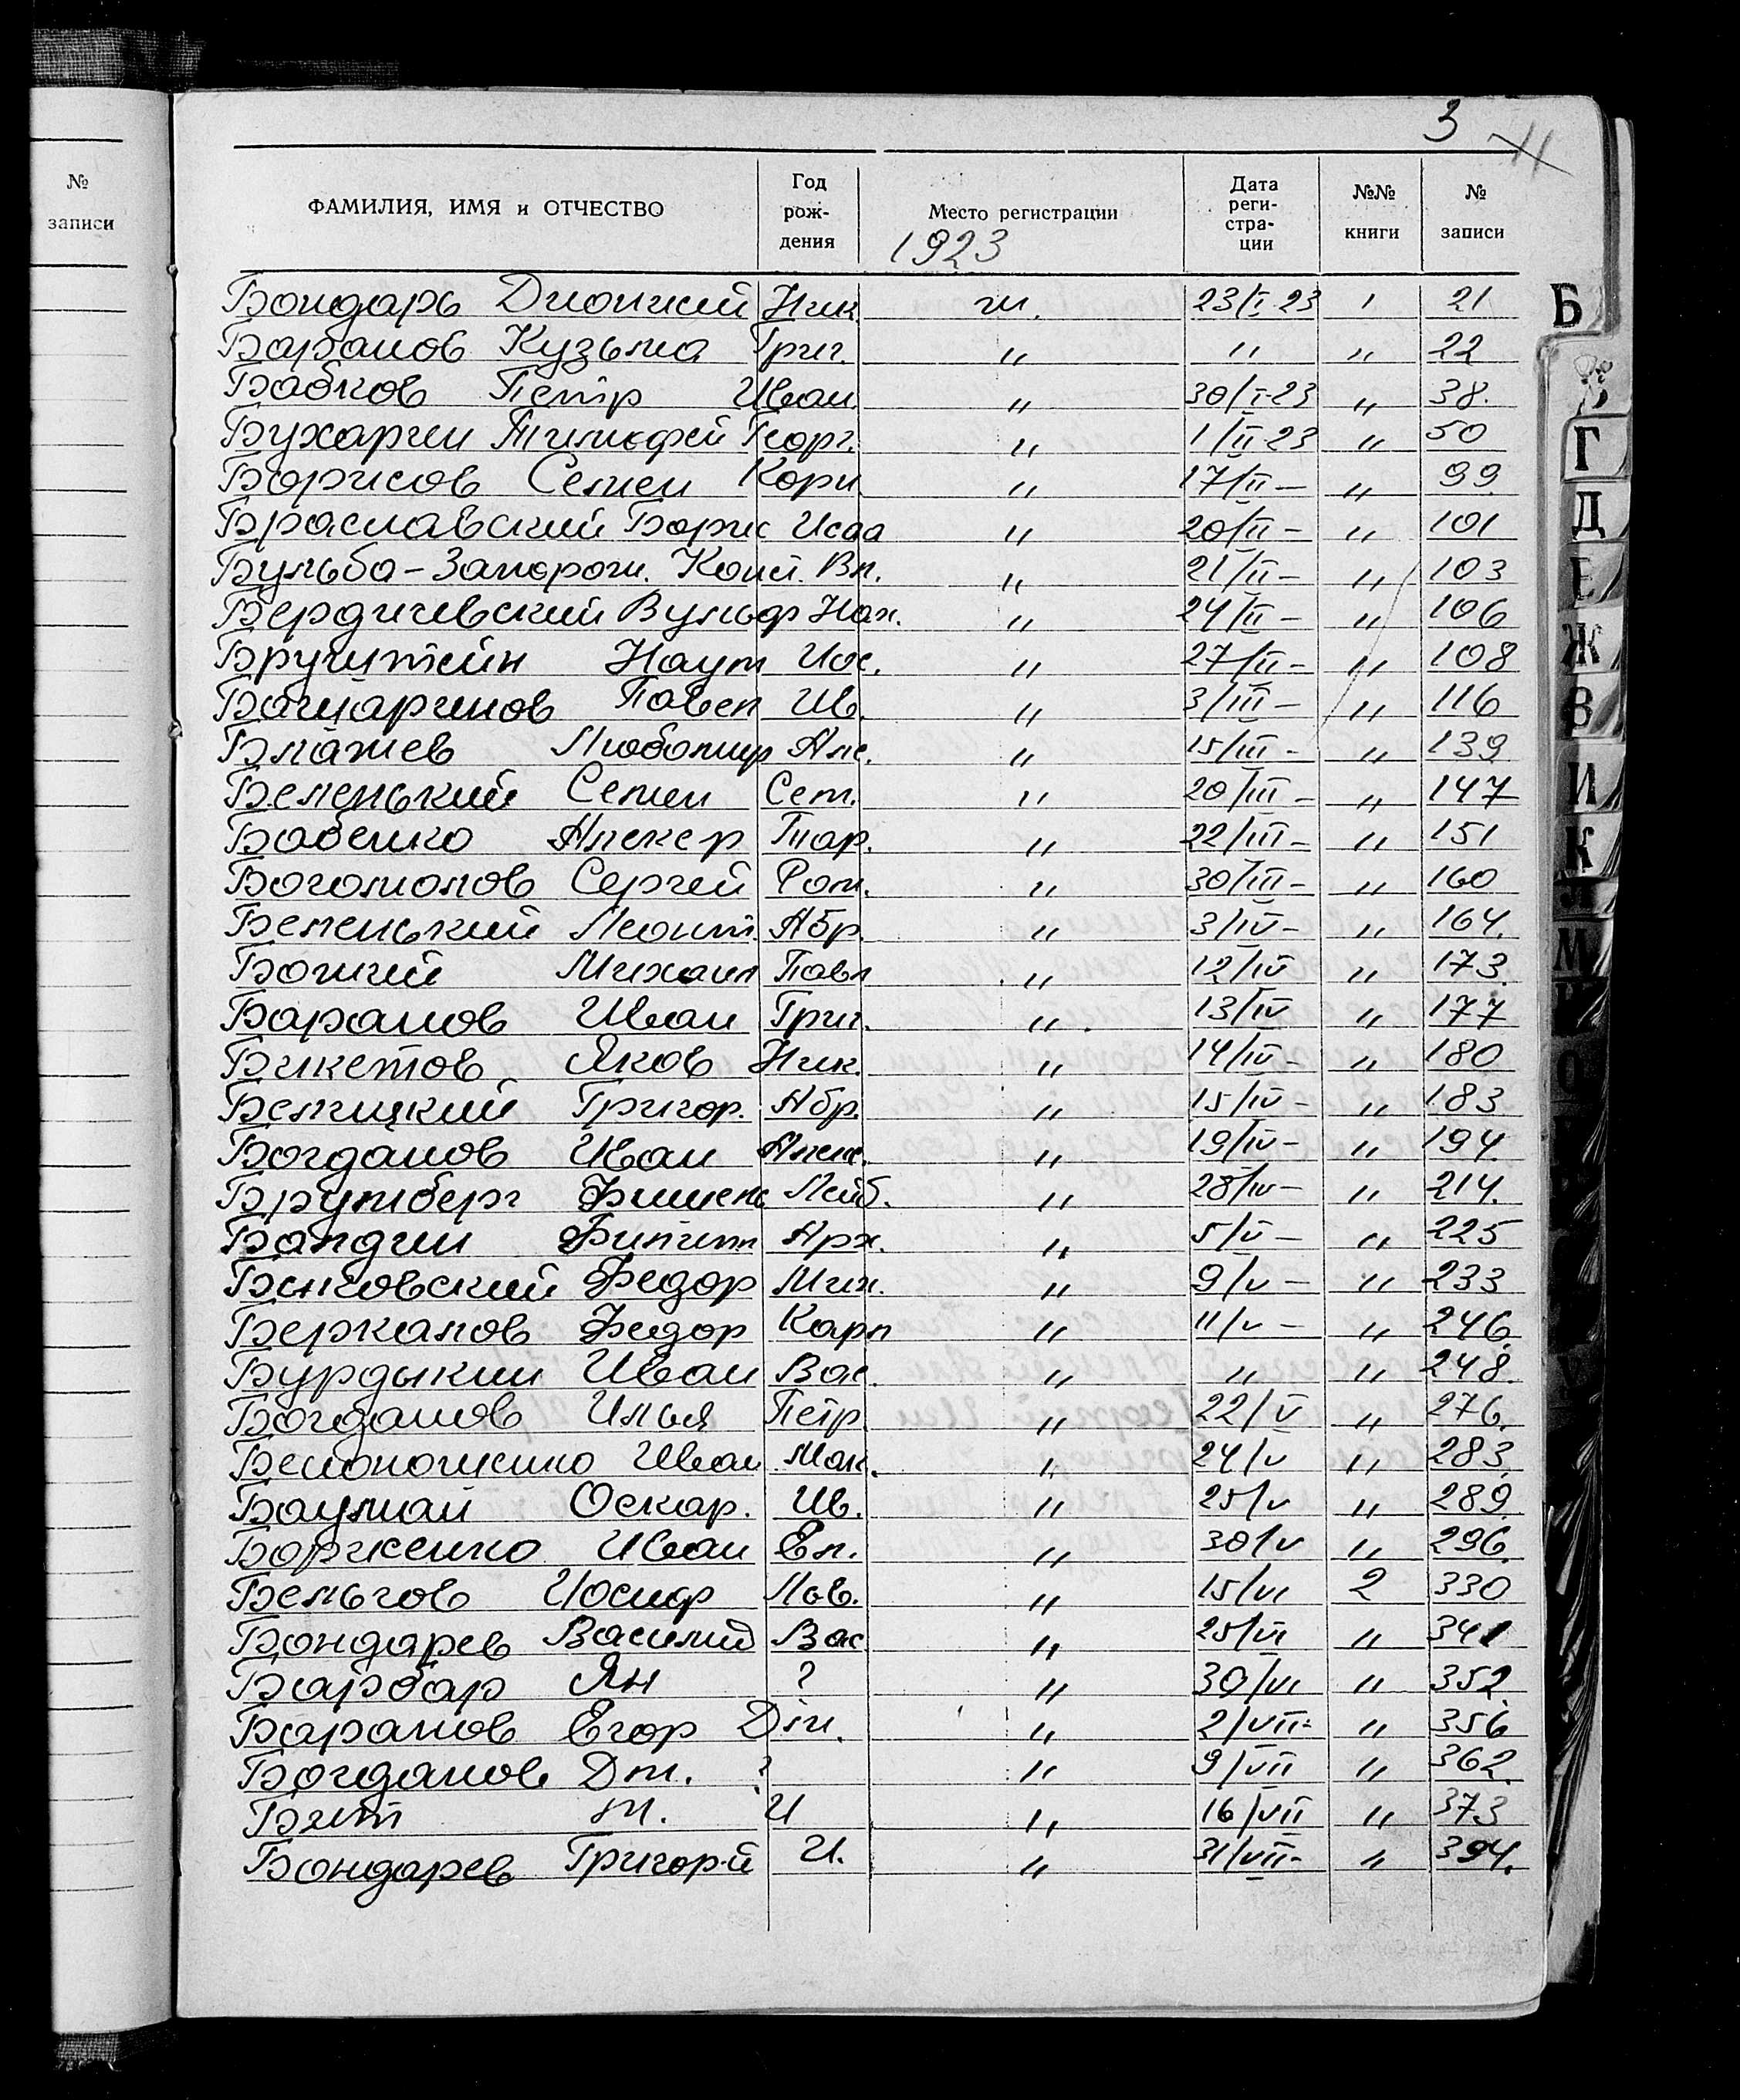 3 11
№ записи
ФАМИЛИЯ, ИМЯ и ОТЧЕСТВО Год рождения Место регистрации Дата регистрации №№ книги № записи
1923
Бондарь Дионисий Ник. м. 23/I-23 1 21
Барбанов Кузьма Григ. " " " 22
Бабков Петр Иван. " 30/I-23 " 38.
Бухарин Тимофей Георг. " 1/II-23 " 50
Борисов Семен Корн. " 17/II- " 99
Браславский Борис Исаа " 20/II- " 101
Бульба-Запорож. Вл. " 21/II- " 103
Бердичевский Вульф Нах. " 24/II- " 106
Бруштейн Наум Иос. " 27/II- " 108
Павел Ив. " 3/III- " 116
Блажев Любомир Але. " 15/III- " 139
Беленький Семен Сем. " 20/III- " 147
Бабенко Алекср Тар. " 22/III- " 151
Богомолов Сергей Ром. " 30/III- " 160
Беленький Леонт. Абр. " 3/IV- " 164.
Божий Михаил Павл " 12/IV " 173.
Баранов Иван Григ. " 13/IV " 177
Бикетов Яков Ник. " 14/IV- " 180
Григор. Абр. " 15/IV- " 183
Богданов Иван Алек. " 19/IV- " 194.
Брумберг Фишель Лейб. " 28/IV- " 214.
Баландин Филипп Арх. " 5/V- " 225
Федор Мих. " 9/V- " 233
Беркалов Федор Карп " 11/V- " 246.
Бурдыкин Иван Вас. " " " 248.
Богданов Илья Петр " 22/V " 276.
Иван Мак. " 24/V " 283.
Бауман Оскар. Ив. " 25/V " 289.
Борженко Иван Ел. " 30/V " 296.
Бельгов Иосиф Льв. " 15/VI 2 330
Бондарев Василий Вас " 25/VI " 341
Барбар Ян ? " 30/VI " 352.
Баранов Егор Дм. " 2/VII- " 356
Богданов Дм. ? " 9/VII " 362.
Бит М. И " 16/VII " 373
Бондарев Григорий И. " 31/VII- " 394.
Б
Г
Д
Е
Ж
З
И
К
Л
М
Н
О